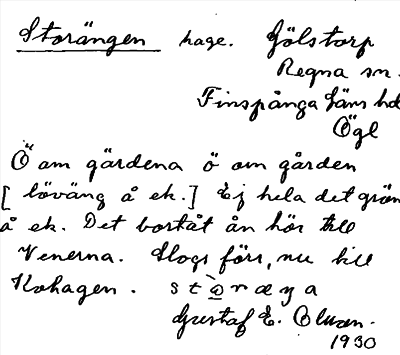 Storängen hage. Gölstorp
Regna sn.
Finspånga läns hd
Ögl
Ö om gärdena ö om gården
[ löväng å ek. ] Ej hela det grön
å ek. Det bortåt ån hör till
Venerna. Slogs förr, nu till
Kohagen.
Gustaf E. Olsson.
1930